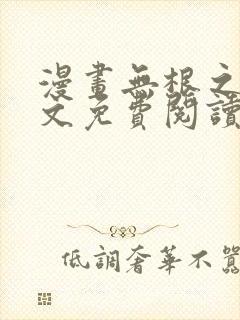 漫畫無根之
文免費閱讀
低調奢華不囂